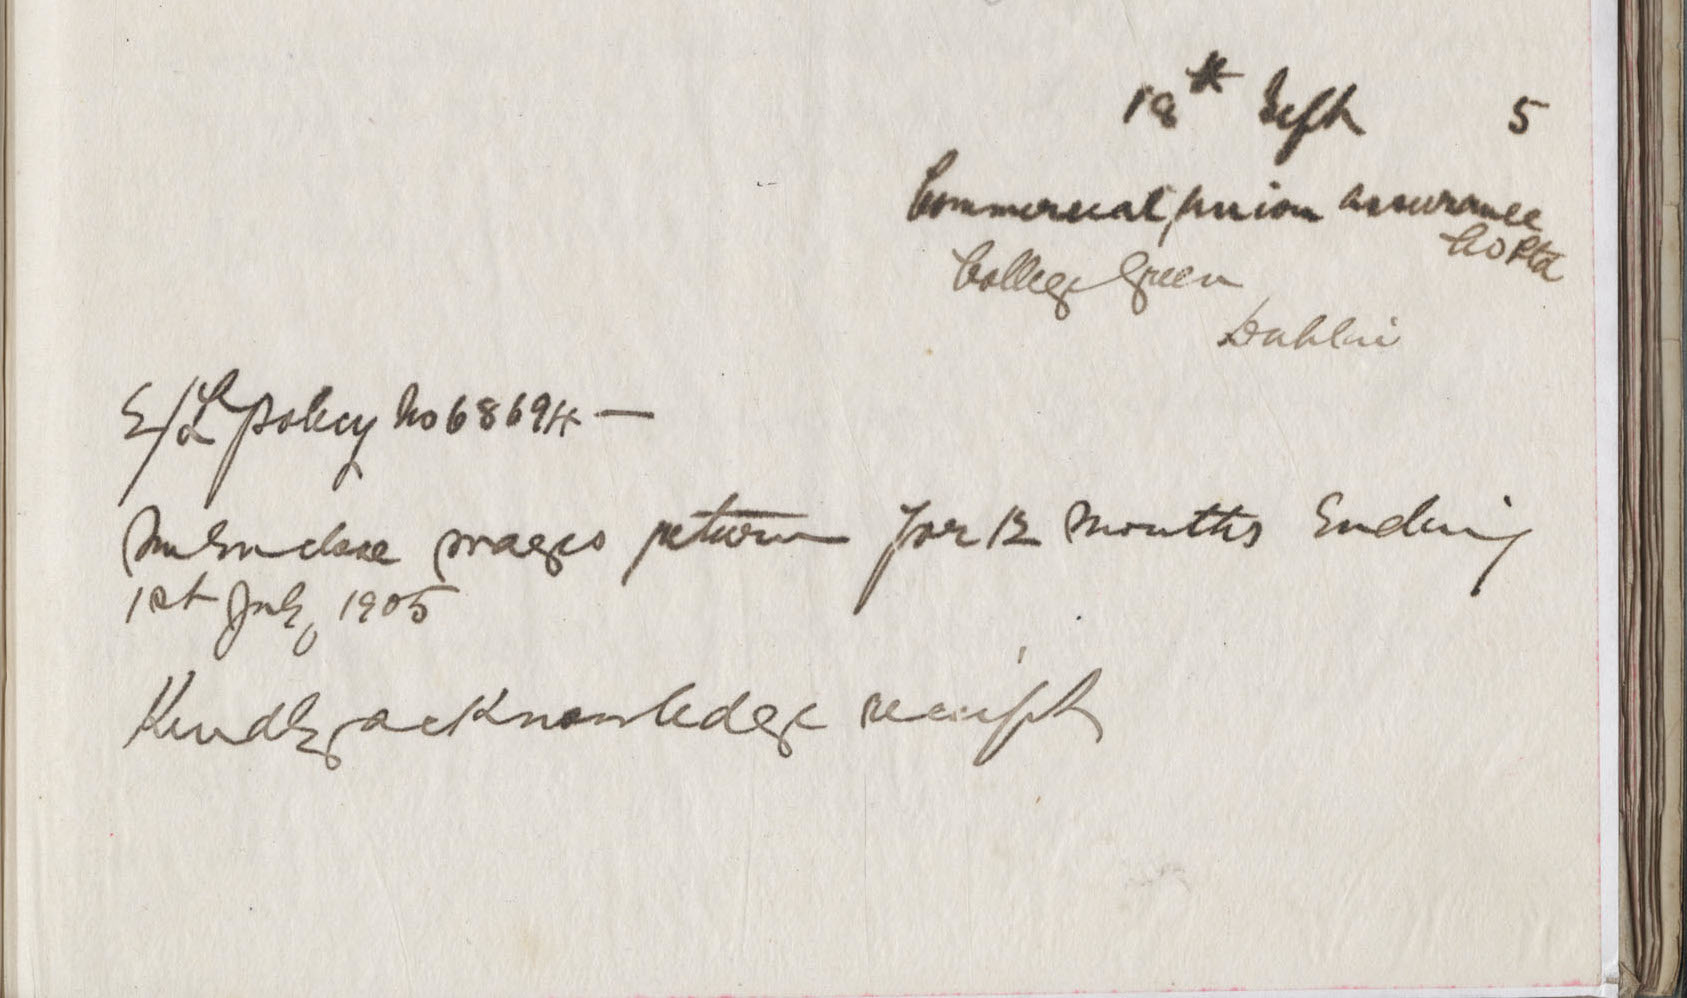 18th Sept 5
Commercial Union Assurance
Co Ltd
College Green
Dublin
E/L policy No 68694 —
We Enclose wages return for 12 months Ending
1st July, 1905
Kindly acknowledge receipt